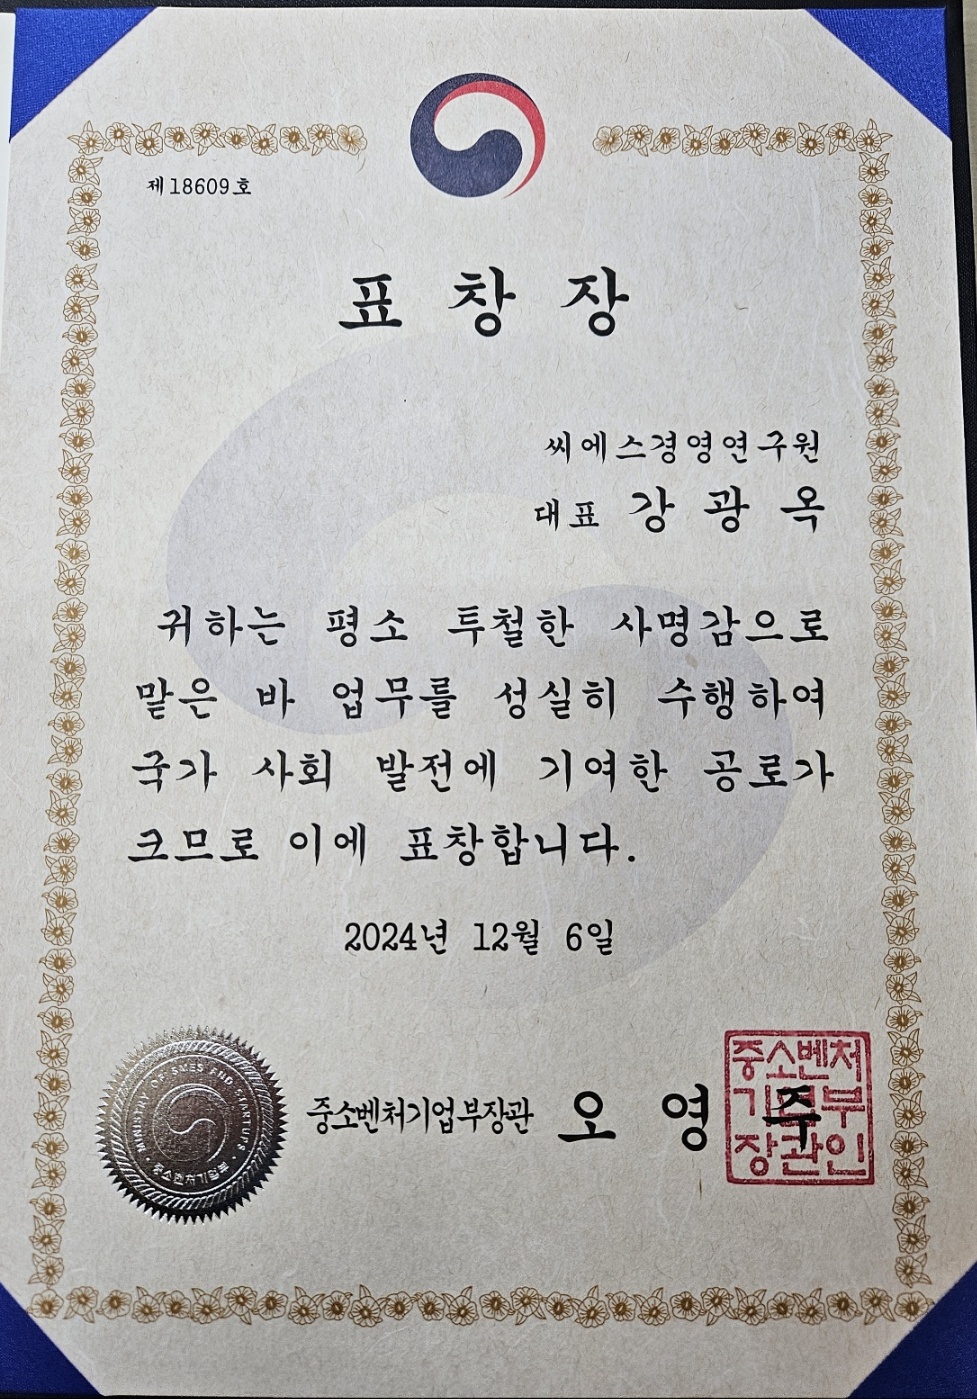 제18609호
표 창 장
씨에스경영연구원
대표 강 광 옥
귀하는 평소 투철한 사명감으로
맡은 바 업무를 성실히 수행하여
국가 사회 발전에 기여한 공로가
크므로 이에 표창합니다.
2024년 12월 6일
MINISTRY OF SMES AND STARTUPS
중소벤처기업부
중소벤처기업부장관 오 영 주
중소벤처
기업부
장관인